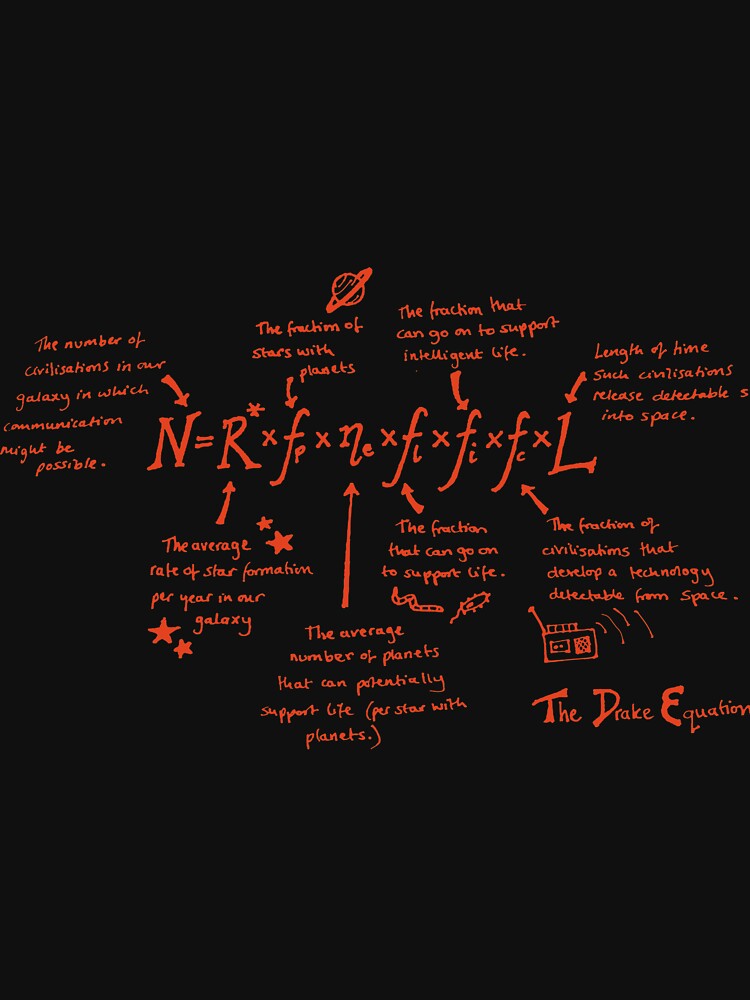 The number of
civilisations in our
galaxy in which
communication
might be
possible.
The fraction of
stars with
planets
The fraction that
can go on to support
intelligent life.
Length of time
such civilisations
release detectable s
into space.
N = R* × fp × ηe × fl × fi × fc × L
The average
rate of star formation
per year in our
galaxy
The average
number of planets
that can potentially
support life (per star with
planets.)
The fraction
that can go on
to support life.
The fraction of
civilisations that
develop a technology
detectable from space.
The Drake Equation